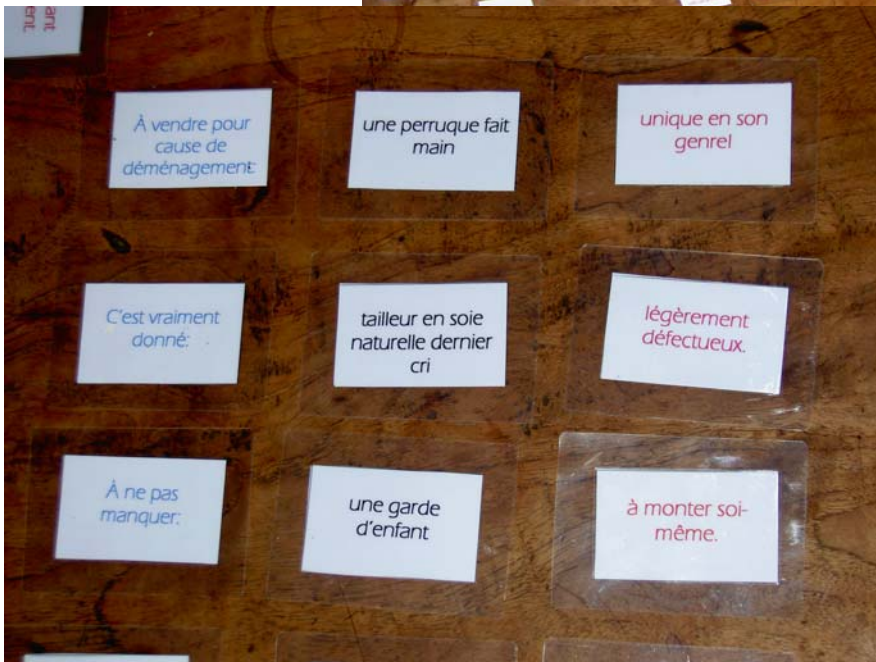 ant
ent.
À vendre pour
cause de
déménagement:
une perruque fait
main
unique en son
genrel
C'est vraiment
donné:
tailleur en soie
naturelle dernier
cri
légèrement
défectueux.
À ne pas
manquer:
une garde
d'enfant
à monter soi-
même.